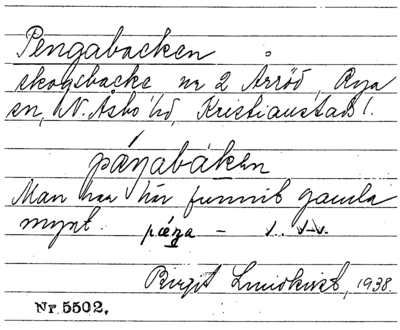 Pengabacken
skogsbacke nr 2 Arröd, Rya
sn, N. Åsbo hd, Kristianstads l.
pæŋabákɛn
Man har här funnit gamla
mynt. pæŋa –
Birgit Lindkvist, 1938.
Nr. 5502.